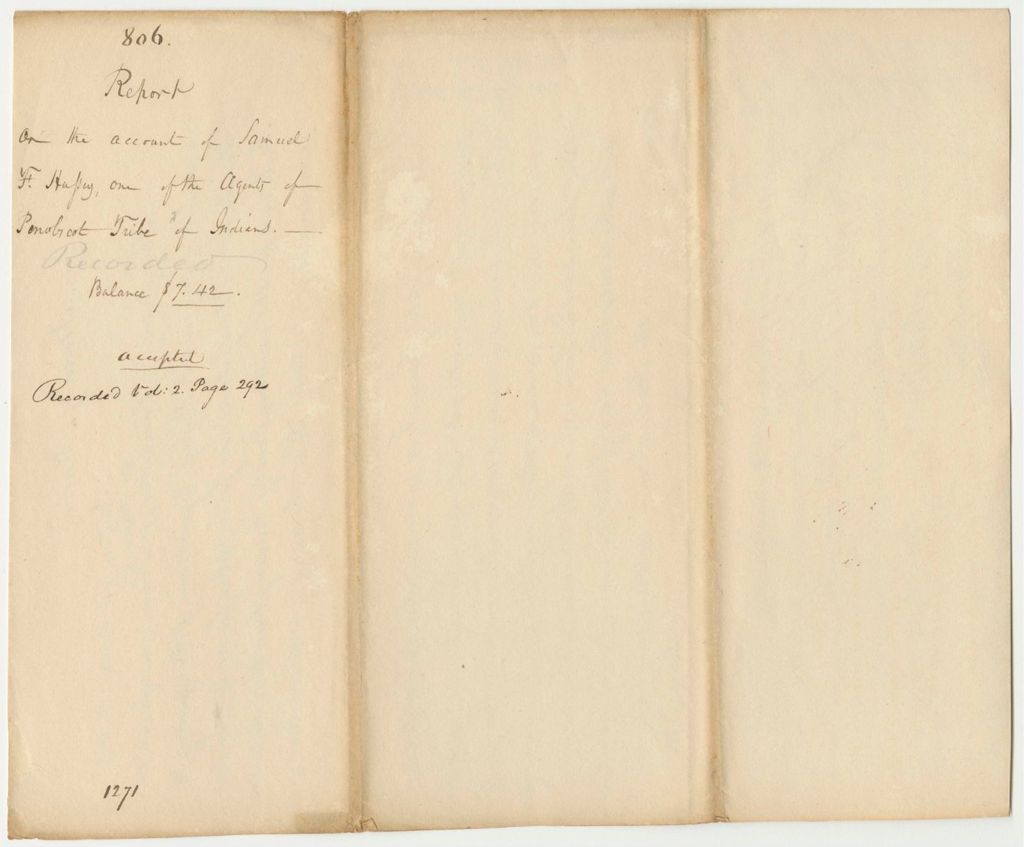 806.
Report
On the account of Samuel
F. Hussey, one of the Agents of
Penobscot Tribe of Indians. —
Recorded
Balance $7.42.
accepted
Recorded Vol: 2. Page 292
1271